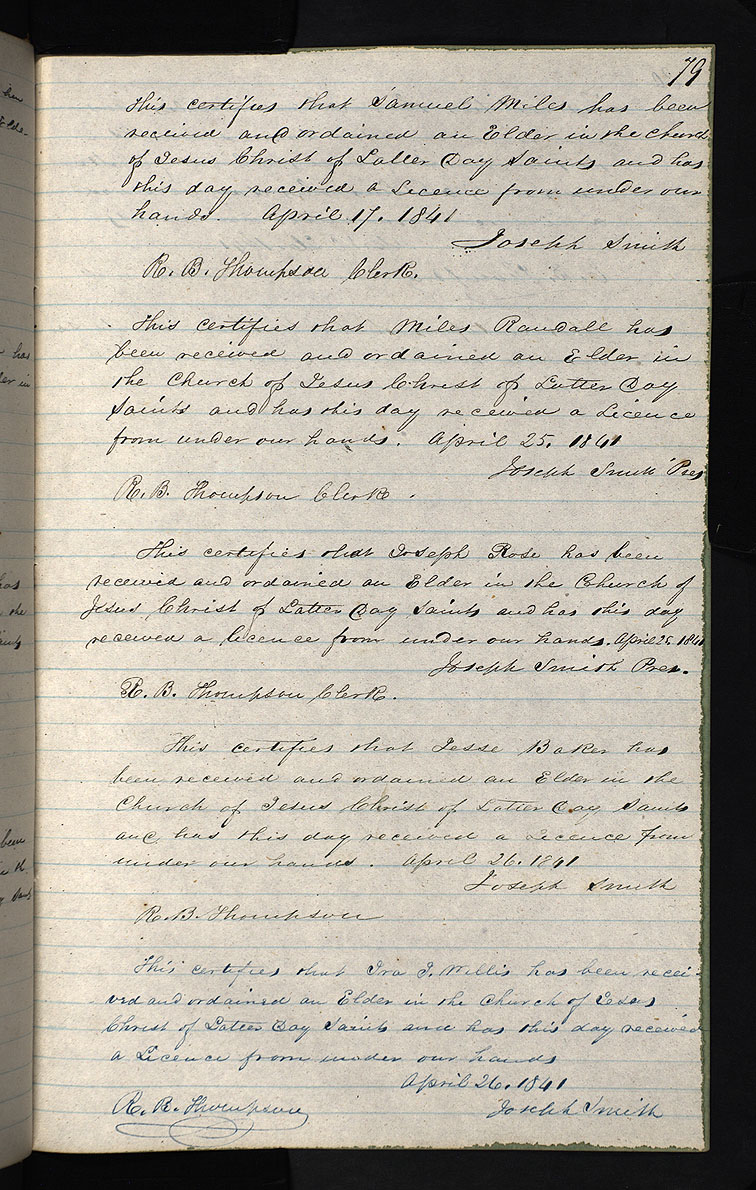 79
This certifies that Samuel Miles has been
received and ordained an Elder in the Church
of Jesus Christ of Latter Day Saints and has
this day received a Licence from under our
hands. April 17. 1841
Joseph Smith
R. B. Thompson Clerk.
This certifies that Miles Randall has
been received and ordained an Elder in
the Church of Jesus Christ of Latter Day
Saints and has this day received a Licence
from under our hands. April 25. 1841
Joseph Smith Pres
R. B. Thompson Clerk.
This certifies that Joseph Rose has been
received and ordained an Elder in the Church of
Jesus Christ of Latter Day Saints and has this day
received a licence from under our hands. April 25. 1841
Joseph Smith Pres.
R. B. Thompson Clerk.
This certifies that Jesse Baker has
been received and ordained an Elder in the
Church of Jesus Christ of Latter Day Saints
and has this day received a Licence from
under our hands. April 26. 1841
Joseph Smith
R. B. Thompson
This certifies that Ira J. Willis has been recei-
ved and ordained an Elder in the Church of Jesus
Christ of Latter Day Saints and has this day received
a Licence from under our hands
April 26. 1841
R. B. Thompson Joseph Smith